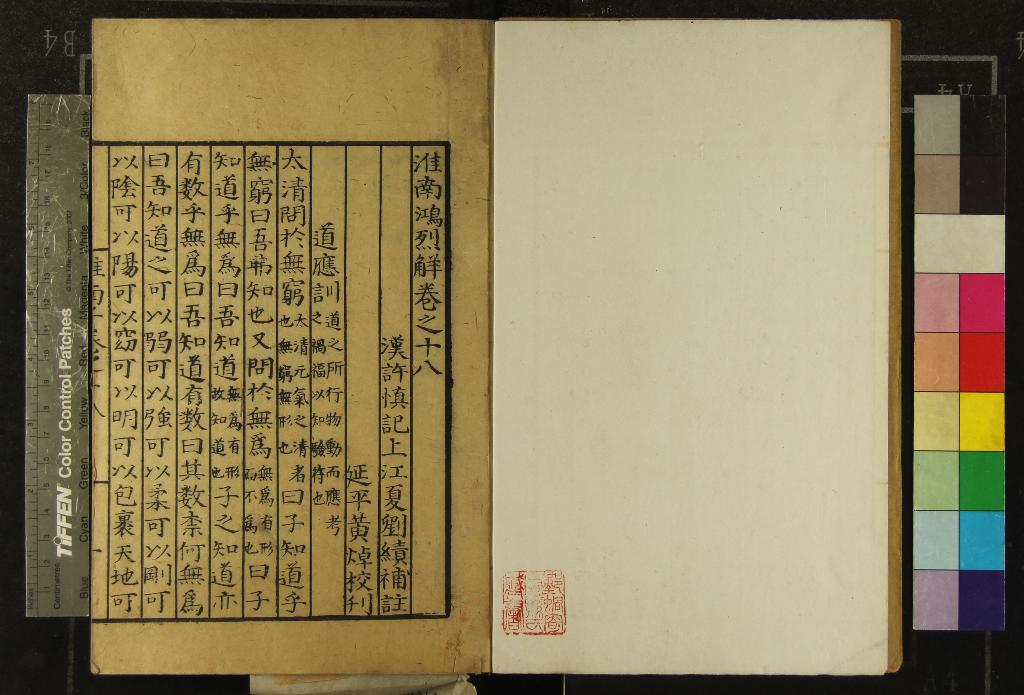 淮南鴻烈解卷之十八
漢許慎記上江夏劉績補註
延平黃焯校刋
道應訓道之所行物動而應考之禍福以知驗符也
太清問於無窮太清元氣之清者也無窮無形也曰子知道乎
無窮曰吾弗知也又問於無為無為有形而不為也曰子
知道乎無為曰吾知道無為有形故知道也子之知道亦
有数乎無為曰吾知道有数曰其数柰何無為
曰吾知道之可以弱可以強可以柔可以剛可
以陰可以陽可以窈可以明可以包裹天地可
B4
A4
Inches
Centimetres
TIFFEN Color Control Patches
Blue Cyan Green Yellow Red Magenta White 3/Color Black